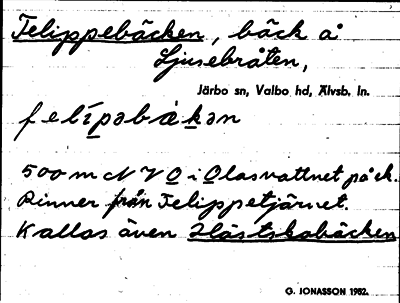 Felippebäcken, bäck å
Ljusebråten,
Järbo sn, Valbo hd, Älvsb. ln.
felípəbäkən
500 m NNO i Olasvattnet på ek.
Rinner från Felippetjärnet.
Kallas även Hästskobäcken
G. JONASSON 1982.